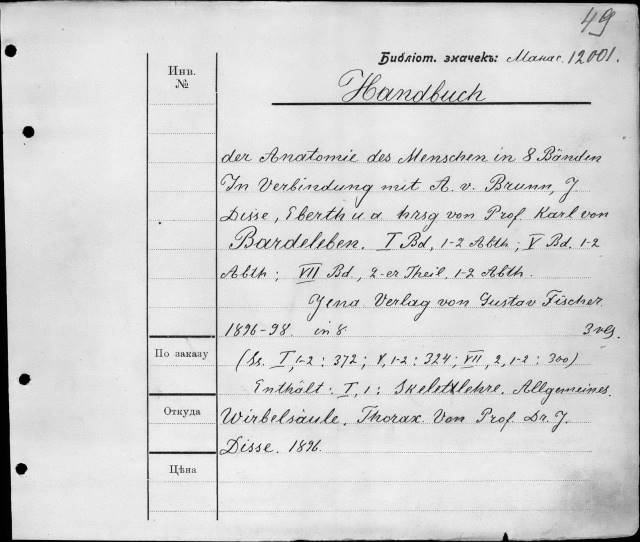 49
Библіот. значекъ: Манас. 12001.
Инв.
№
Handbuch
der Anatomie des Menschen in 8 Bänden
In Verbindung mit A. v. Brunn, J.
Disse, Eberth u a. hrsg von Prof. Karl von
Bardeleben. I Bd, 1-2 Abth; V Bd. 1-2
Abth; VII Bd, 2-er Theil, 1-2 Abth.
Jena Verlag von Gustav Fischer
1896-98. in 8. 3 vol.
По заказу
(Ss. I, 1-2: 372; V, 1-2: 324; VII, 2, 1-2: 300)
Enthält: I, 1: Skeletlehre. Allgemeines.
Откуда
Wirbelsäule. Thorax. Von Prof. Dr. J.
Disse. 1896.
Цѣна